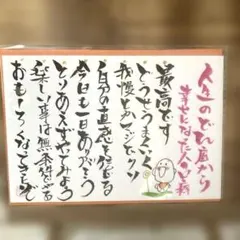 人生のどん底から
幸せになった人の口ぐせ
最高です
どうせうまくいく
我慢とかマジでムリ
自分の直感を信じる
今日も一日ありがとう
とりあえずやってみよう
楽しい事は無条件でやる
おもしろくなってきたぞ